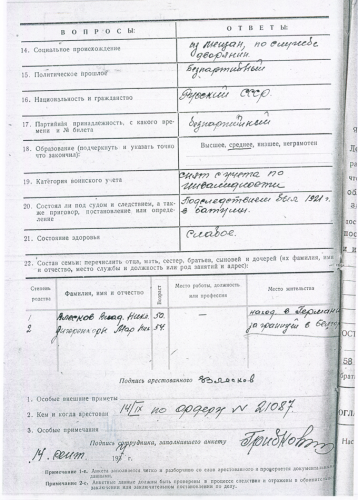 ВОПРОСЫ: ОТВЕТЫ:
14. Социальное происхождение из мещан, по службе
дворянин
15. Политическое прошлое Безпартийный
16. Национальность и гражданство Русский СССР
17. Партийная принадлежность, с какого вре-
мени и № билета безпартийный
18. Образование (подчеркнуть и указать точно
что закончил): Высшее, среднее, низшее, неграмотен
19. Категория воинского учета снят с учета по
инвалидности
20. Состоял ли под судом и следствием, а так-
же приговор, постановление или опреде-
ление Подследствием был 1921 г.
в
21. Состояние здоровья Слабое.
22. Состав семьи: перечислить отца, мать, сестер, братьев, сыновей и дочерей (их фамилия, имя
и отчество, место службы и должность или род занятий и адрес):
Степень
родства Фамилия, имя и отчество Возраст Место работы, должность
или профессия Место жительства
1 50. наход. в Германи
2 54. за границей в
Подпись арестованного
1. Особые внешние приметы
2. Кем и когда арестован 14/IX по ордеру № 21087.
3. Особые примечания
Подпись сотрудника, заполнявшего анкету
14. сент. 193 г.
Примечание 1-е. Анкета заполняется четко и разборчиво со слов арестованного и проверяется документальными
данными.
Примечание 2-е. Анкетные данные должны быть проверены в процессе следствия и отражены в обвинительном
заключении или заключительном постановлении по делу.